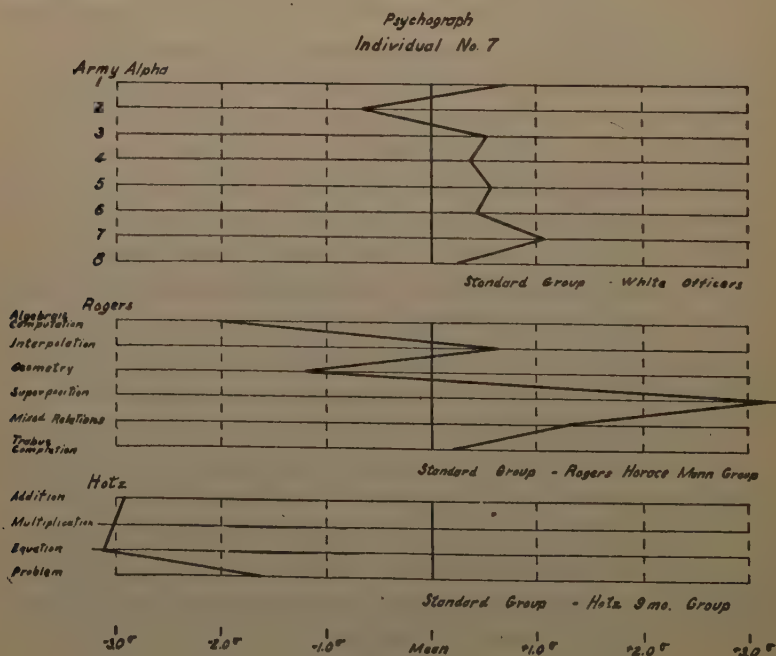 Psychograph
Individual No. 7
Army Alpha
1
2
3
4
5
6
7
8
Standard Group - White Officers
Rogers
Algebraic
Computation
Interpolation
Geometry
Superposition
Mixed Relations
Trabue
Completion
Standard Group - Rogers Horace Mann Group
Hotz
Addition
Multiplication
Equation
Problem
Standard Group - Hotz 9 mo. Group
-3.0σ -2.0σ -1.0σ Mean +1.0σ +2.0σ +3.0σ